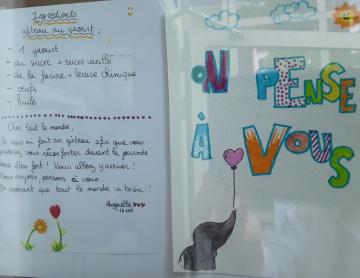 Ingrédients
gâteau au yaourt :
- 1 yaourt
- du sucre + sucre vanille
- de la farine + levure chimique
- œufs
- huile
Cher tout le monde,
Je vous ai fait un gâteau afin que vous
puissiez vous réconforter durant la journée
Vous êtes fort ! Vous allez y arriver !
Nous croyons, pensons à vous.
En espérant que tout le monde va bien !
ON PENSE
À VOUS